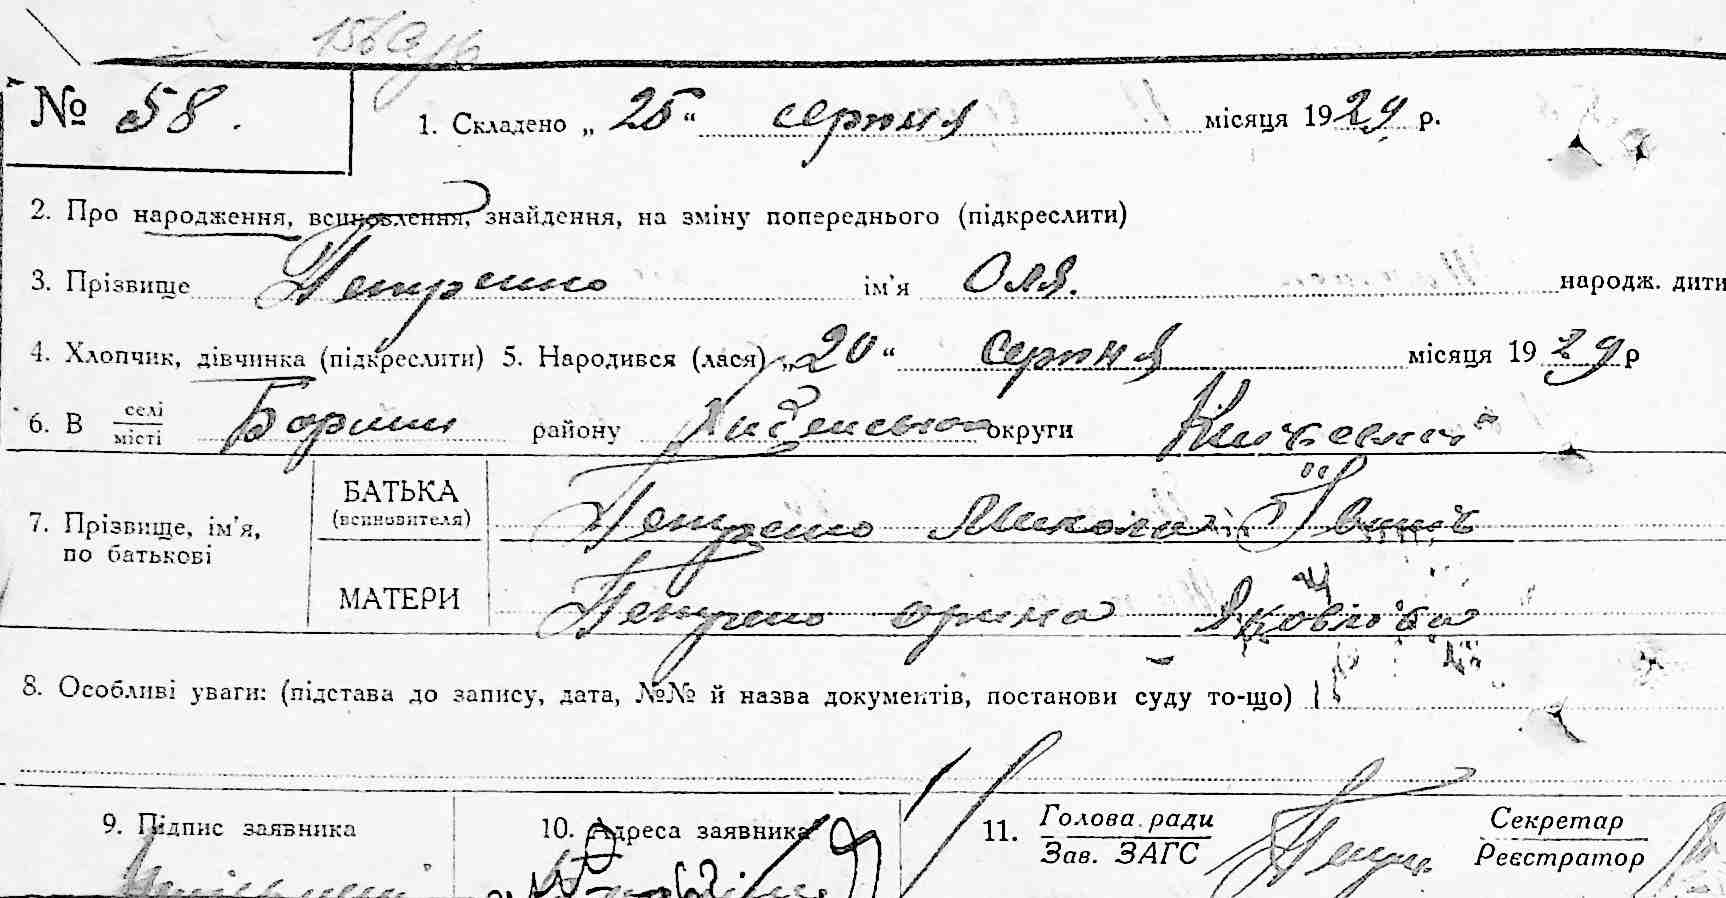 № 58. 1. Складено „ 25 “ серпня місяця 1929 р.
2. Про народження, всиновлення, знайдення, на зміну попереднього (підкреслити)
3. Прізвище Петренко ім'я Оля. народж. дити
4. Хлопчик, дівчинка (підкреслити) 5. Народився (лася) „ 20 “ серпня місяця 1929 р
6. В селі місті району округи
7. Прізвище, ім'я, по батькові
БАТЬКА (всиновителя) Петренко Микола Іванів
МАТЕРИ Петренко орина Яковлівна
8. Особливі уваги: (підстава до запису, дата, №№ й назва документів, постанови суду то-що)
9. Підпис заявника 10. Адреса заявника 11. Голова ради Зав. ЗАГС Секретар Реєстратор